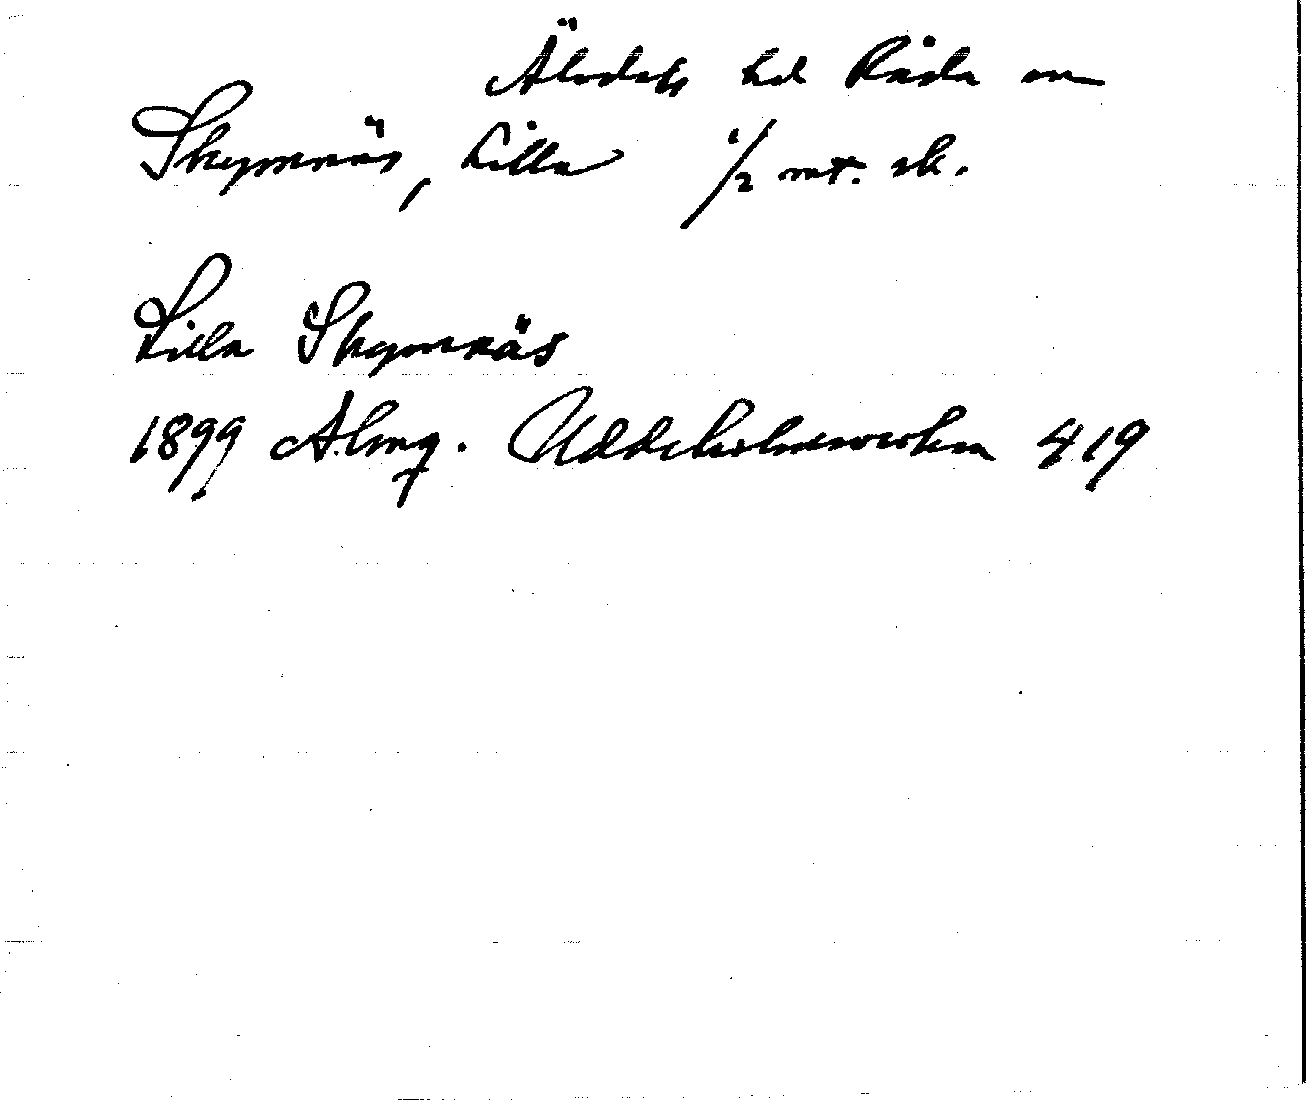 Älvdals hd Råda sn
Skymnäs, Lilla 1/2 mt. sk.
Lilla Skymnäs
1899 Almq. Uddeholmsverken 419